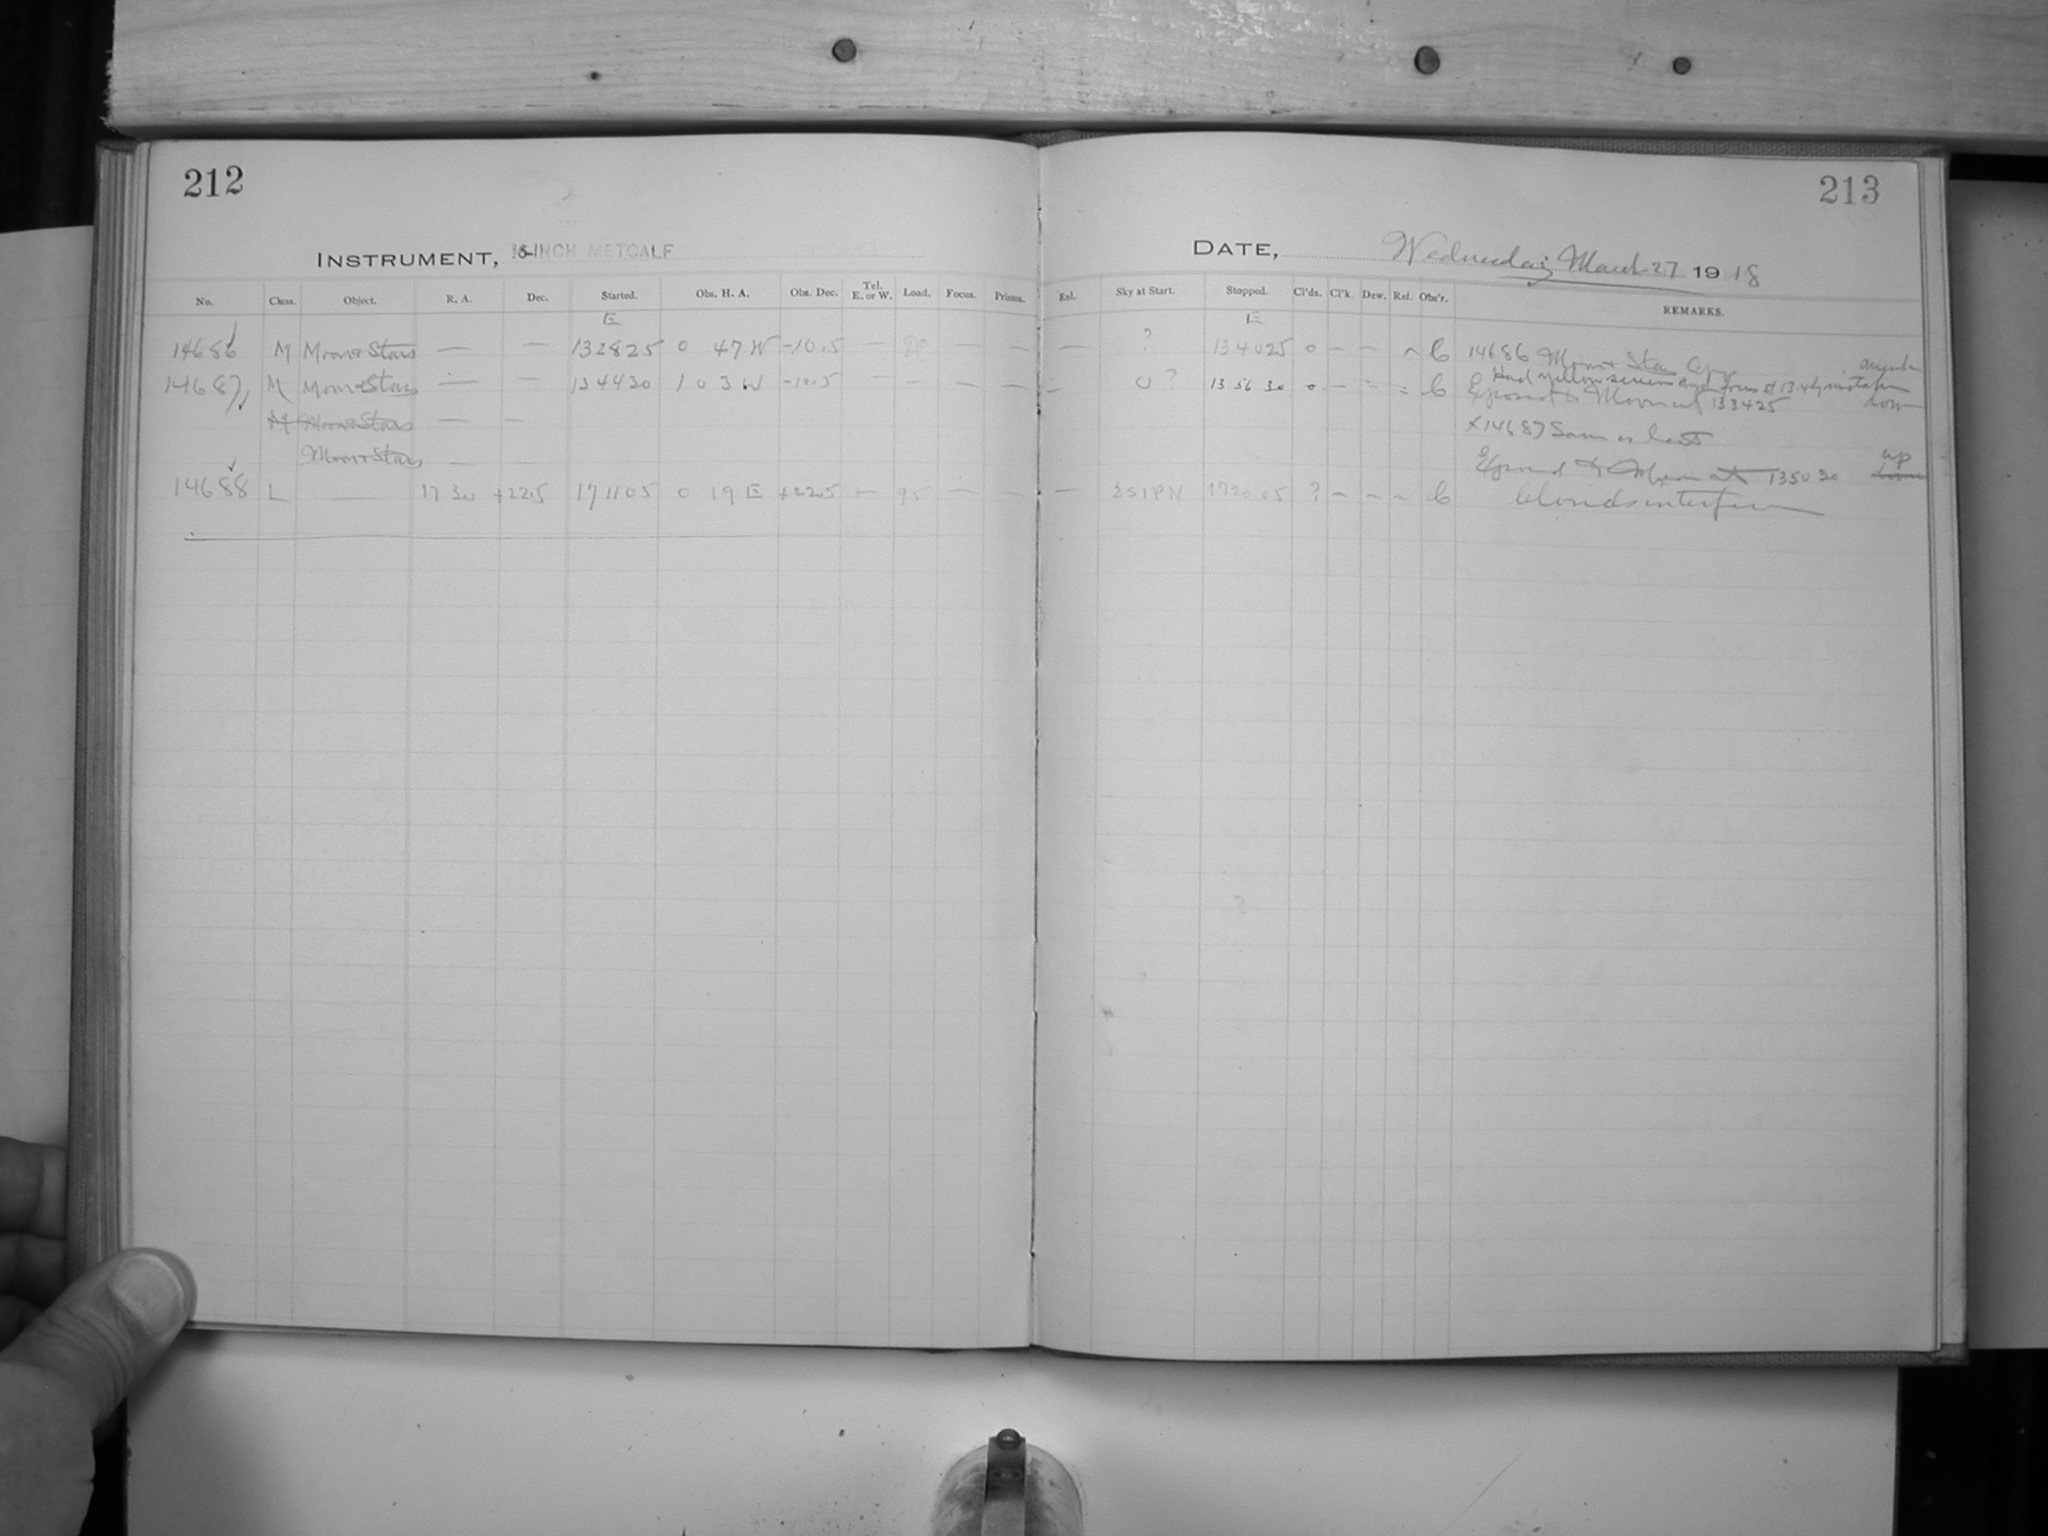 212
INSTRUMENT, 16-INCH METCALF
No. Class. Object. R. A. Dec. Started. Obs. H. A. Obs. Dec. Tel. E. or W. Load. Focus. Prisms.
E
14686 M Moon+Stars — — 132825 0 47 W -10.5 — — — —
14687 M Moon+Stars — — 134430 1 03 W -10.5 — — — —
M Moon+Stars — —
Moon+Stars — —
14688 L — 17 30 +22.5 171105 0 19 E +22.5 — 95 — —
213
DATE, Wednesday March 27 1918
Eal. Sky at Start. Stopped. Cl'ds. Cl'k. Dew. Ref. Obs'r. REMARKS.
E
— ? 134025 0 — — C 14686 Moon + Stars
Had yellow screen and focus of 17.4 by mistake
— 0 ? 135630 0 — — — C Exposed to Moon at 133425 down
X 14687 Same as last
Exposed to Moon at 135030 up down
— 2S1PN 172005 ? — — — C Clouds interfere